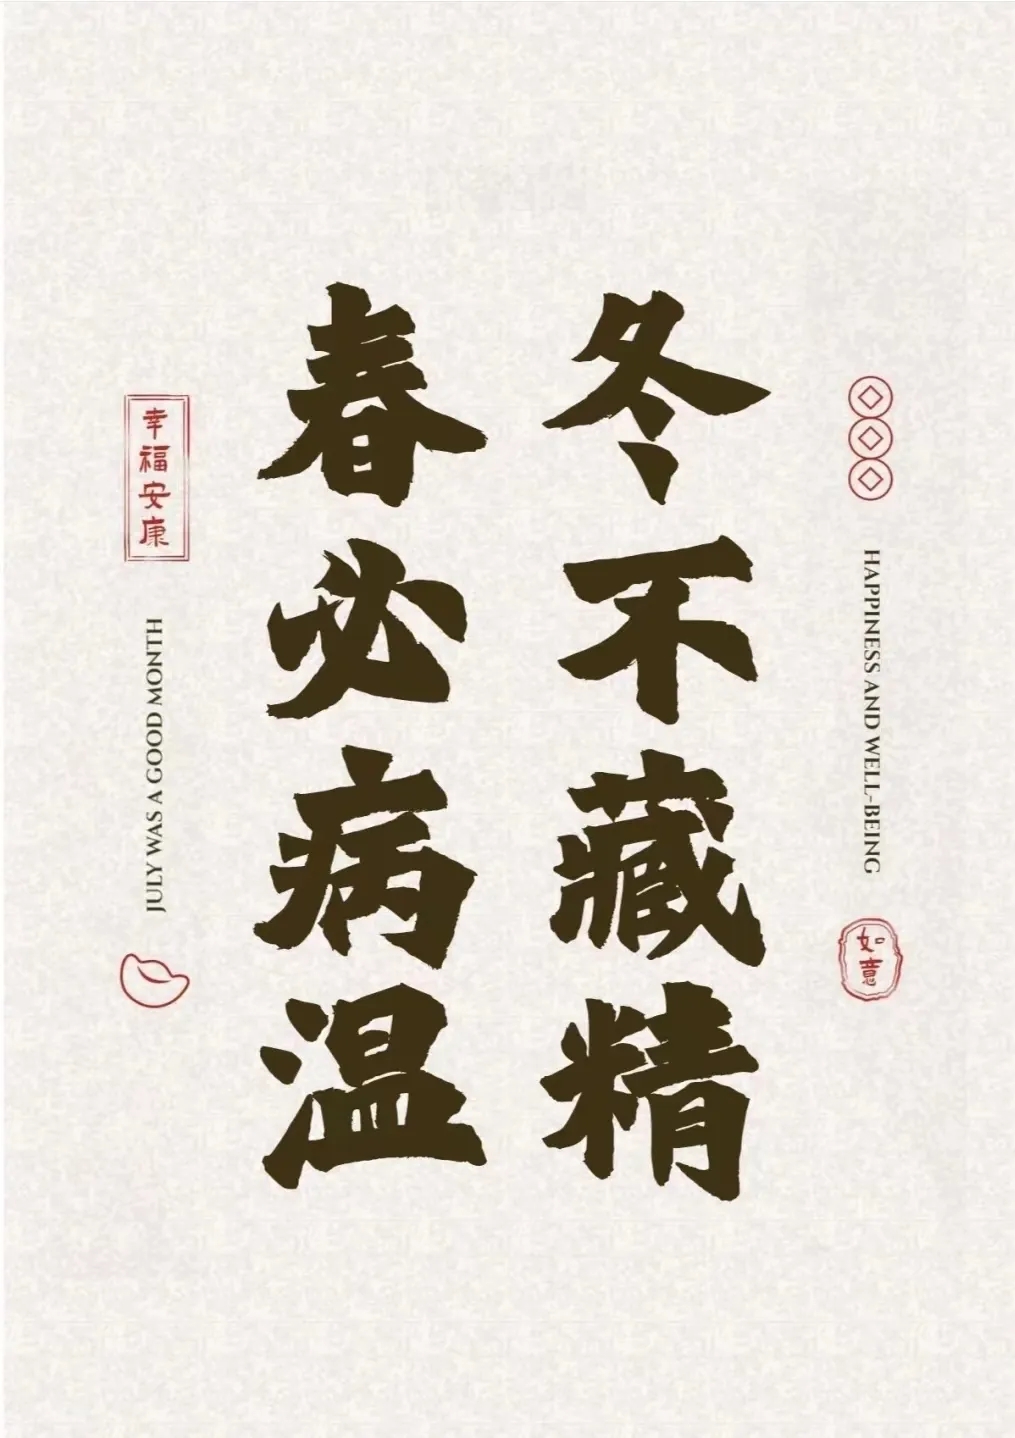 冬不藏精
春必病温
幸福安康
JULY WAS A GOOD MONTH
HAPPINESS AND WELL-BEING
如意